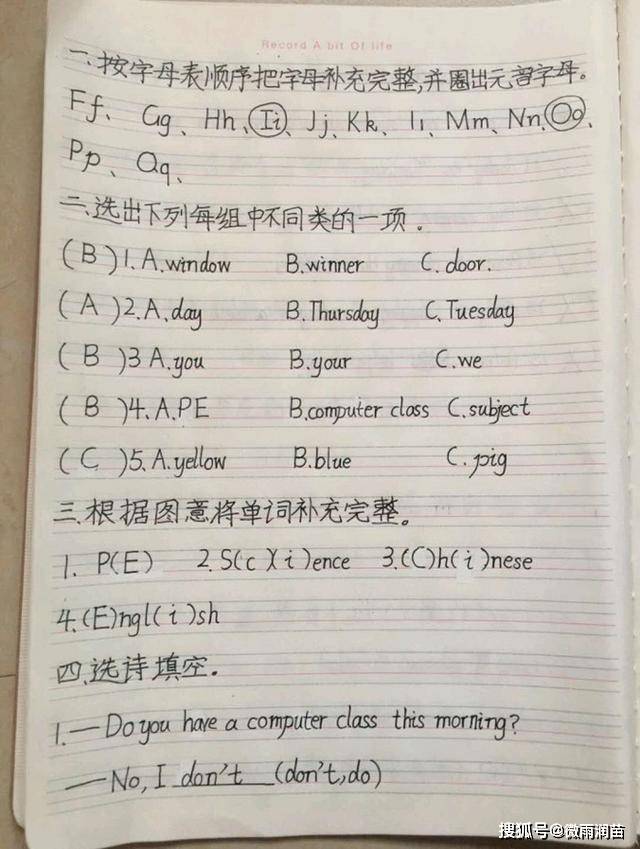 Record A bit Of life
一、按字母表顺序把字母补充完整,并圈出元音字母。
Ff、Gg、Hh、Ii、Jj、Kk、Ll、Mm、Nn、Oo、
Pp、Qq、
二、选出下列每组中不同类的一项。
(B)1.A.window B.winner C.door.
(A)2.A.day B.Thursday C.Tuesday
(B)3 A.you B.your C.we
(B)4.A.PE B.computer class C.subject
(C)5.A.yellow B.blue C.pig
三、根据图意将单词补充完整。
1. P(E) 2.S(c)(i)ence 3.(C)h(i)nese
4.(E)ngl(i)sh
四、选诗填空.
1.—Do you have a computer class this morning?
—No, I don't (don't,do)
搜狐号@微雨润苗